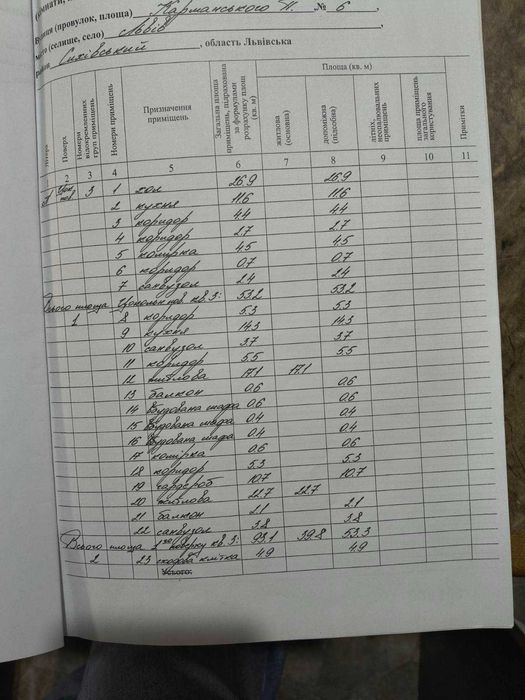 Вулиця (провулок, площа) Карманського П. № 6,
місто (селище, село) Львів,
район Сихівський, область Львівська
Літера
Поверх
Номери відокремлених груп приміщень
Номери приміщень
Призначення приміщень
Загальна площа приміщень, підрахована за формулами розрахунку площ (кв. м)
Площа (кв. м)
житлова (основна)
допоміжна (підсобна)
літніх, неопалювальних приміщень
площа приміщень загального користування
Примітки
2 3 4 5 6 7 8 9 10 11
3 1 хол 26.9 26.9
2 кухня 11.6 11.6
3 коридор 4.4 4.4
4 коридор 2.7 2.7
5 комірка 4.5 4.5
6 коридор 0.7 0.7
7 санвузол 2.4 2.4
Всього площа цокольн. пов. кв. 3: 53.2 53.2
1 8 коридор 5.3 5.3
9 кухня 14.3 14.3
10 санвузол 3.7 3.7
11 коридор 5.5 5.5
12 житлова 17.1 17.1
13 балкон 0.6 0.6
14 Вбудована шафа 0.6 0.6
15 Вбудована шафа 0.4 0.4
16 Вбудована шафа 0.4 0.4
17 комірка 0.6 0.6
18 коридор 5.3 5.3
19 гардероб 10.7 10.7
20 житлова 22.7 22.7
21 балкон 2.1 2.1
22 санвузол 3.8 3.8
Всього площа 1го поверху кв. 3: 93.1 39.8 53.3
2 23 сходова клітка 4.9 4.9
Усього: